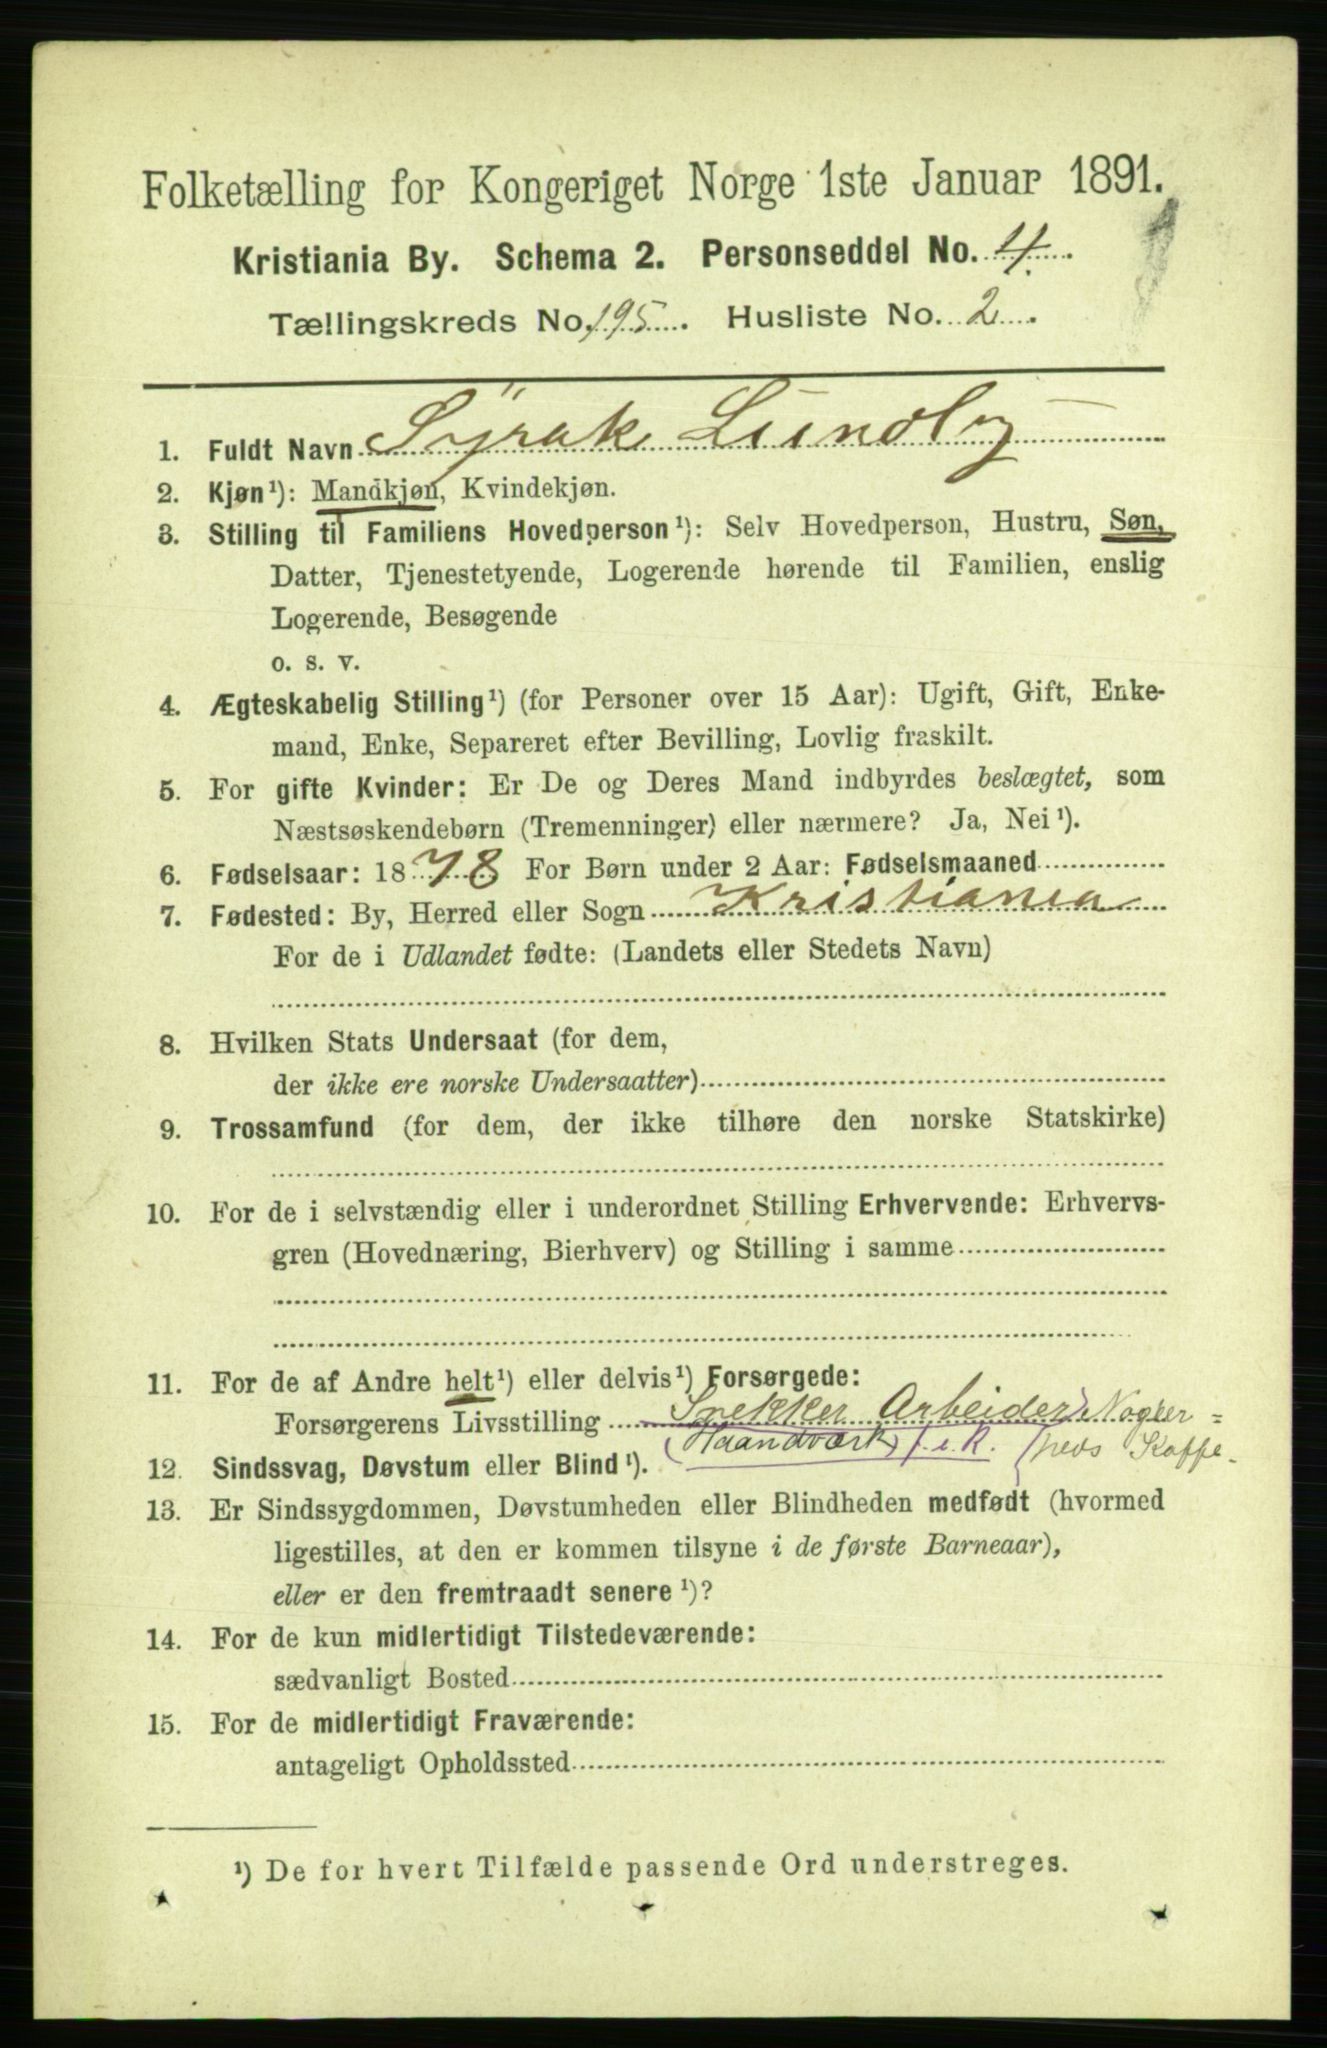 Folketælling for Kongeriget Norge 1ste Januar 1891.
Kristiania By. Schema 2. Personseddel No. 4.
Tællingskreds No. 195. Husliste No. 2.
1. Fuldt Navn Syrak Lundby
2. Kjøn¹): Mandkjøn, Kvindekjøn.
3. Stilling til Familiens Hovedperson¹): Selv Hovedperson, Hustru, Søn,
Datter, Tjenestetyende, Logerende hørende til Familien, enslig
Logerende, Besøgende
o. s. v.
4. Ægteskabelig Stilling¹) (for Personer over 15 Aar): Ugift, Gift, Enke-
mand, Enke, Separeret efter Bevilling, Lovlig fraskilt.
5. For gifte Kvinder: Er De og Deres Mand indbyrdes beslægtet, som
Næstsøskendebørn (Tremenninger) eller nærmere? Ja, Nei¹).
6. Fødselsaar: 1878 For Børn under 2 Aar: Fødselsmaaned
7. Fødested: By, Herred eller Sogn Kristiania
For de i Udlandet fødte: (Landets eller Stedets Navn)
8. Hvilken Stats Undersaat (for dem,
der ikke ere norske Undersaatter)
9. Trossamfund (for dem, der ikke tilhøre den norske Statskirke)
10. For de i selvstændig eller i underordnet Stilling Erhvervende: Erhvervs-
gren (Hovednæring, Bierhverv) og Stilling i samme
11. For de af Andre helt¹) eller delvis¹) Forsørgede:
Forsørgerens Livsstilling Snekker Arbeider
(Haandværk)
12. Sindssvag, Døvstum eller Blind¹).
13. Er Sindssygdommen, Døvstumheden eller Blindheden medfødt (hvormed
ligestilles, at den er kommen tilsyne i de første Barneaar),
eller er den fremtraadt senere¹)?
14. For de kun midlertidigt Tilstedeværende:
sædvanligt Bosted
15. For de midlertidigt Fraværende:
antageligt Opholdssted
¹) De for hvert Tilfælde passende Ord understreges.